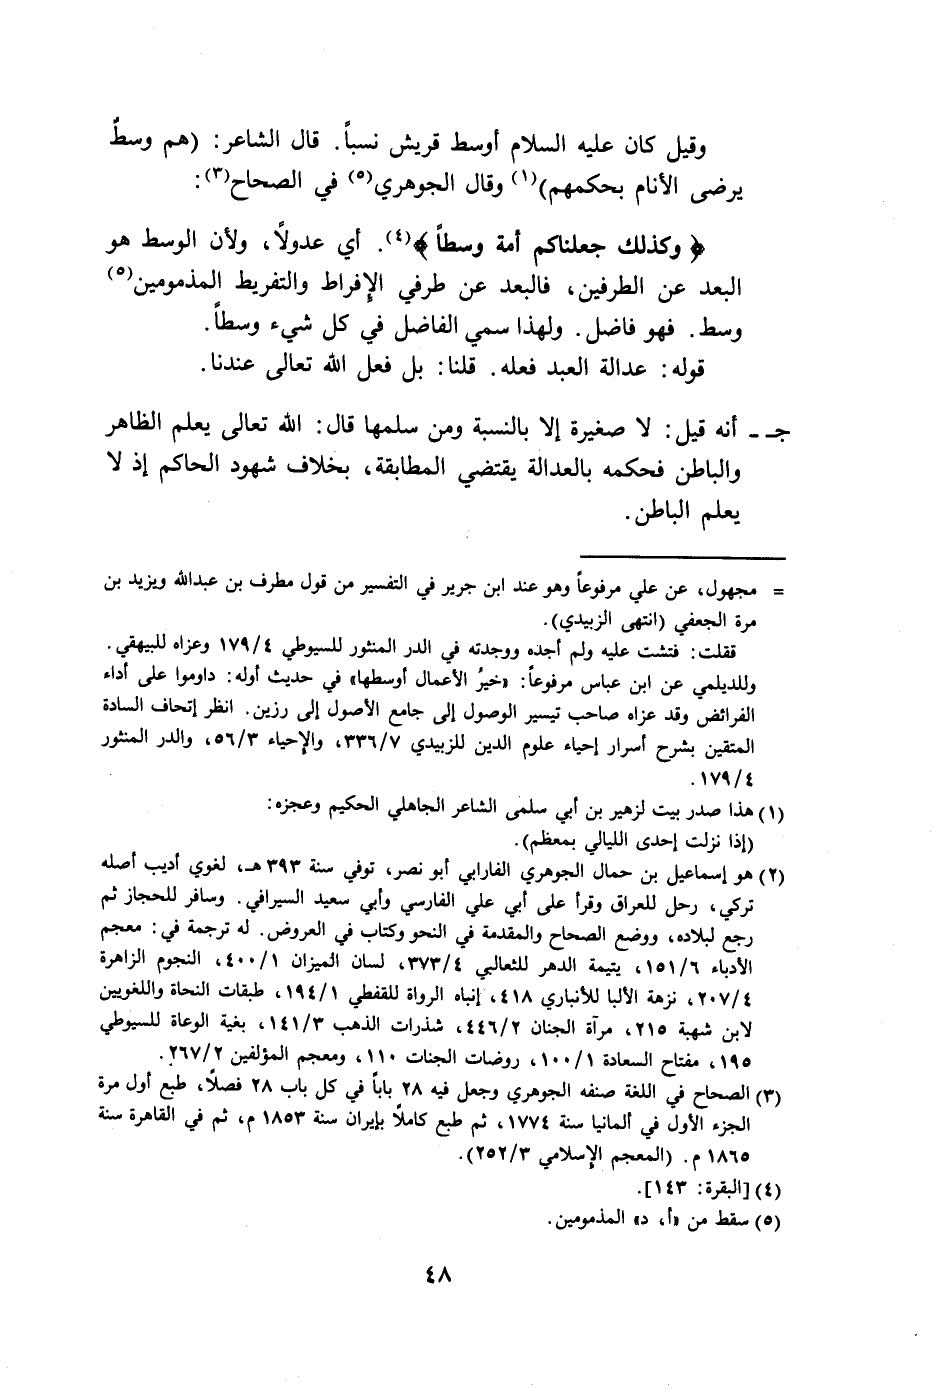 وقيل كان عليه السلام أوسط قريش نسباً. قال الشاعر: (هم وسطٌ
يرضى الأنام بحكمهم)(١) وقال الجوهري(٥) في الصحاح(٣):
﴿ وكذلك جعلناكم أمة وسطاً ﴾(٤). أي عدولاً، ولأن الوسط هو
البعد عن الطرفين، فالبعد عن طرفي الإفراط والتفريط المذمومين(٥)
وسط. فهو فاضل. ولهذا سمي الفاضل في كل شيء وسطاً.
قوله: عدالة العبد فعله. قلنا: بل فعل الله تعالى عندنا.
جـ - أنه قيل: لا صغيرة إلا بالنسبة ومن سلمها قال: الله تعالى يعلم الظاهر
والباطن فحكمه بالعدالة يقتضي المطابقة، بخلاف شهود الحاكم إذ لا
يعلم الباطن.
= مجهول، عن علي مرفوعاً وهو عند ابن جرير في التفسير من قول مطرف بن عبدالله ويزيد بن
مرة الجعفي (انتهى الزبيدي).
فقلت: فتشت عليه ولم أجده ووجدته في الدر المنثور للسيوطي ١٧٩/٤ وعزاه للبيهقي.
وللديلمي عن ابن عباس مرفوعاً: «خيرُ الأعمال أوسطها» في حديث أوله: داوموا على أداء
الفرائض وقد عزاه صاحب تيسير الوصول إلى جامع الأصول إلى رزين. انظر إتحاف السادة
المتقين بشرح أسرار إحياء علوم الدين للزبيدي ٣٣٦/٧، والإحياء ٥٦/٣، والدر المنثور
١٧٩/٤.
(١) هذا صدر بيت لزهير بن أبي سلمى الشاعر الجاهلي الحكيم وعجزه:
(إذا نزلت إحدى الليالي بمعظم).
(٢) هو إسماعيل بن حمال الجوهري الفارابي أبو نصر، توفي سنة ٣٩٣ هـ، لغوي أديب أصله
تركي، رحل للعراق وقرأ على أبي علي الفارسي وأبي سعيد السيرافي. وسافر للحجاز ثم
رجع لبلاده، ووضع الصحاح والمقدمة في النحو وكتاب في العروض. له ترجمة في: معجم
الأدباء ١٥١/٦، يتيمة الدهر للثعالبي ٣٧٣/٤، لسان الميزان ٤٠٠/١، النجوم الزاهرة
٢٠٧/٤، نزهة الألبا للأنباري ٤١٨، إنباه الرواة للقفطي ١٩٤/١، طبقات النحاة واللغويين
لابن شهبة ٢١٥، مرآة الجنان ٤٤٦/٢، شذرات الذهب ١٤١/٣، بغية الوعاة للسيوطي
١٩٥، مفتاح السعادة ١٠٠/١، روضات الجنات ١١٠، ومعجم المؤلفين ٢٦٧/٢.
(٣) الصحاح في اللغة صنفه الجوهري وجعل فيه ٢٨ باباً في كل باب ٢٨ فصلاً، طبع أول مرة
الجزء الأول في ألمانيا سنة ١٧٧٤، ثم طبع كاملاً بإيران سنة ١٨٥٣ م، ثم في القاهرة سنة
١٨٦٥ م. (المعجم الإسلامي ٢٥٢/٣).
(٤) [البقرة: ١٤٣].
(٥) سقط من «أ، د» المذمومين.
٤٨